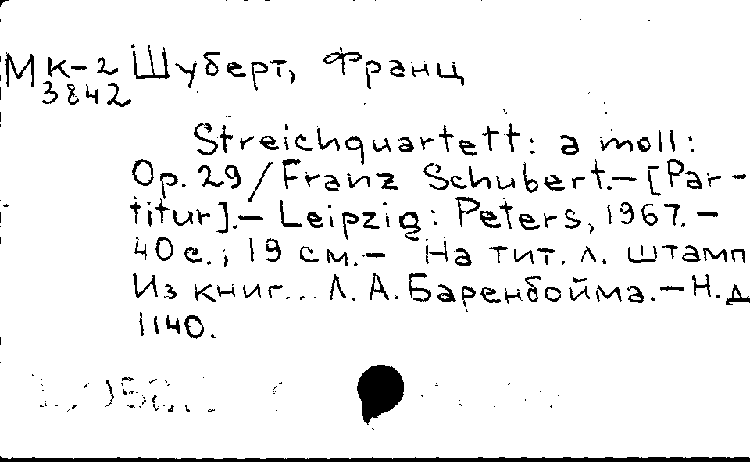 Мк-2 Шуберт, Франц
3842
Streichquartett: a moll:
Op. 29/Franz Schubert.—[Par-
titur].— Leipzig: Peters, 1967.—
40 с.; 19 см.— На тит. л. штамп
Из книг... Л. А. Баренбойма.—Н.д
1140.